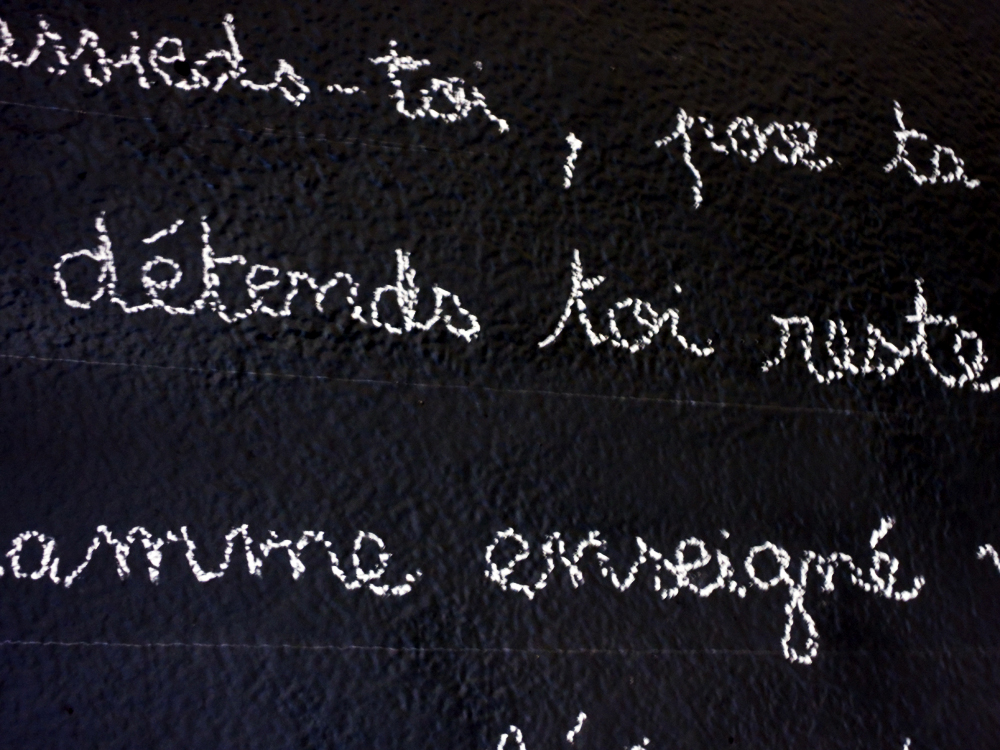 ssieds-toi, pose ta
détends toi reste
amme enseigné